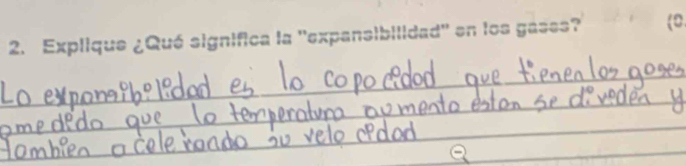 2. Explique ¿Qué significa la "expansibilidad" en los gases? (0.
Lo expansibeledad es lo copocedod que tienen los goses
amededo que lo temperatura aumenta estan se diveden y
tombien acelerondo su velocedod